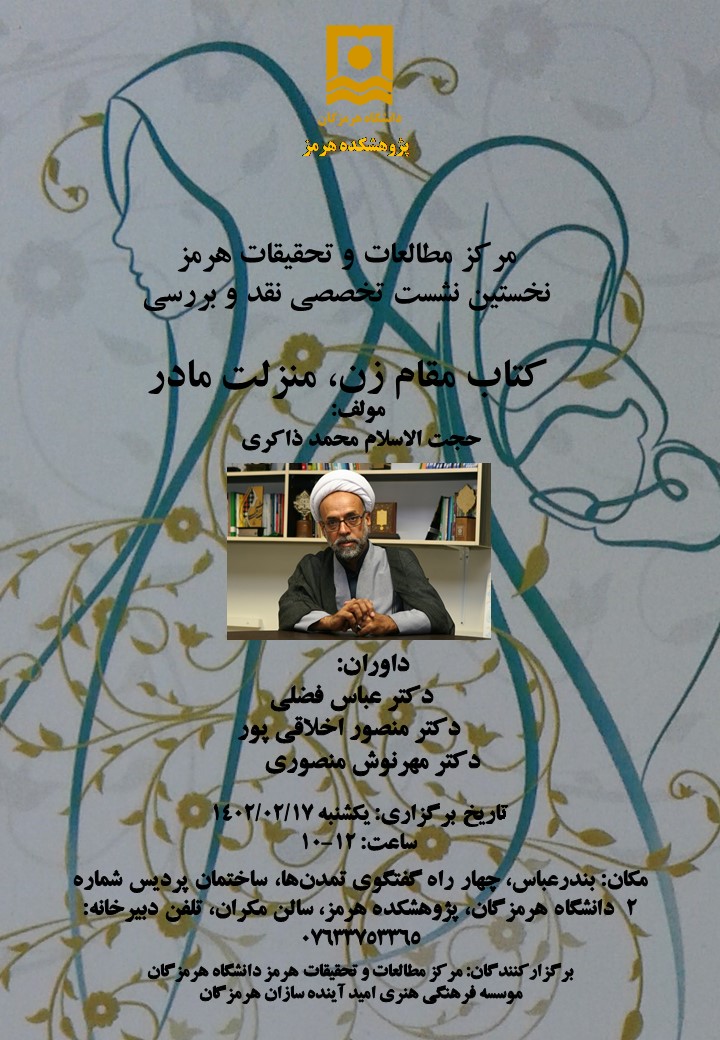 دانشگاه هرمزگان
پژوهشکده هرمز
مرکز مطالعات و تحقیقات هرمز
نخستین نشست تخصصی نقد و بررسی
کتاب مقام زن، منزلت مادر
مولف:
حجت الاسلام محمد ذاکری
داوران:
دکتر عباس فضلی
دکتر منصور اخلاقی پور
دکتر مهرنوش منصوری
تاریخ برگزاری: یکشنبه ۱۴۰۲/۰۲/۱۷
ساعت: ۱۲-۱۰
مکان: بندرعباس، چهار راه گفتگوی تمدن‌ها، ساختمان پردیس شماره
۲ دانشگاه هرمزگان، پژوهشکده هرمز، سالن مکران، تلفن دبیرخانه:
۰۷۶۳۳۷۵۳۳۶۵
برگزارکنندگان: مرکز مطالعات و تحقیقات هرمز دانشگاه هرمزگان
موسسه فرهنگی هنری امید آینده سازان هرمزگان